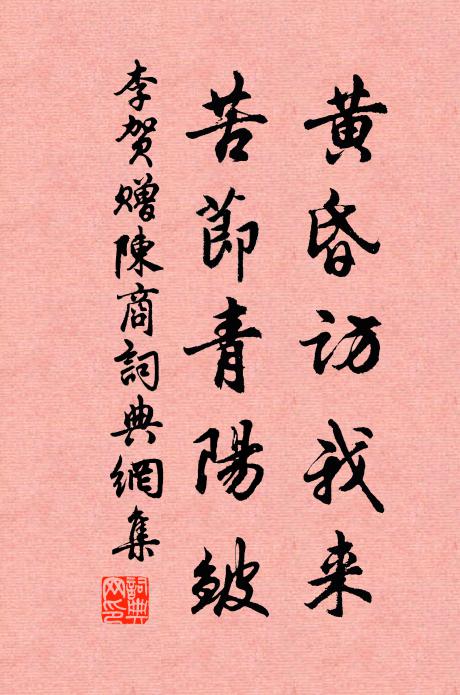 黄昏訪我来
苦節青陽皺
李賀贈陳商詞典網集
詞典网印